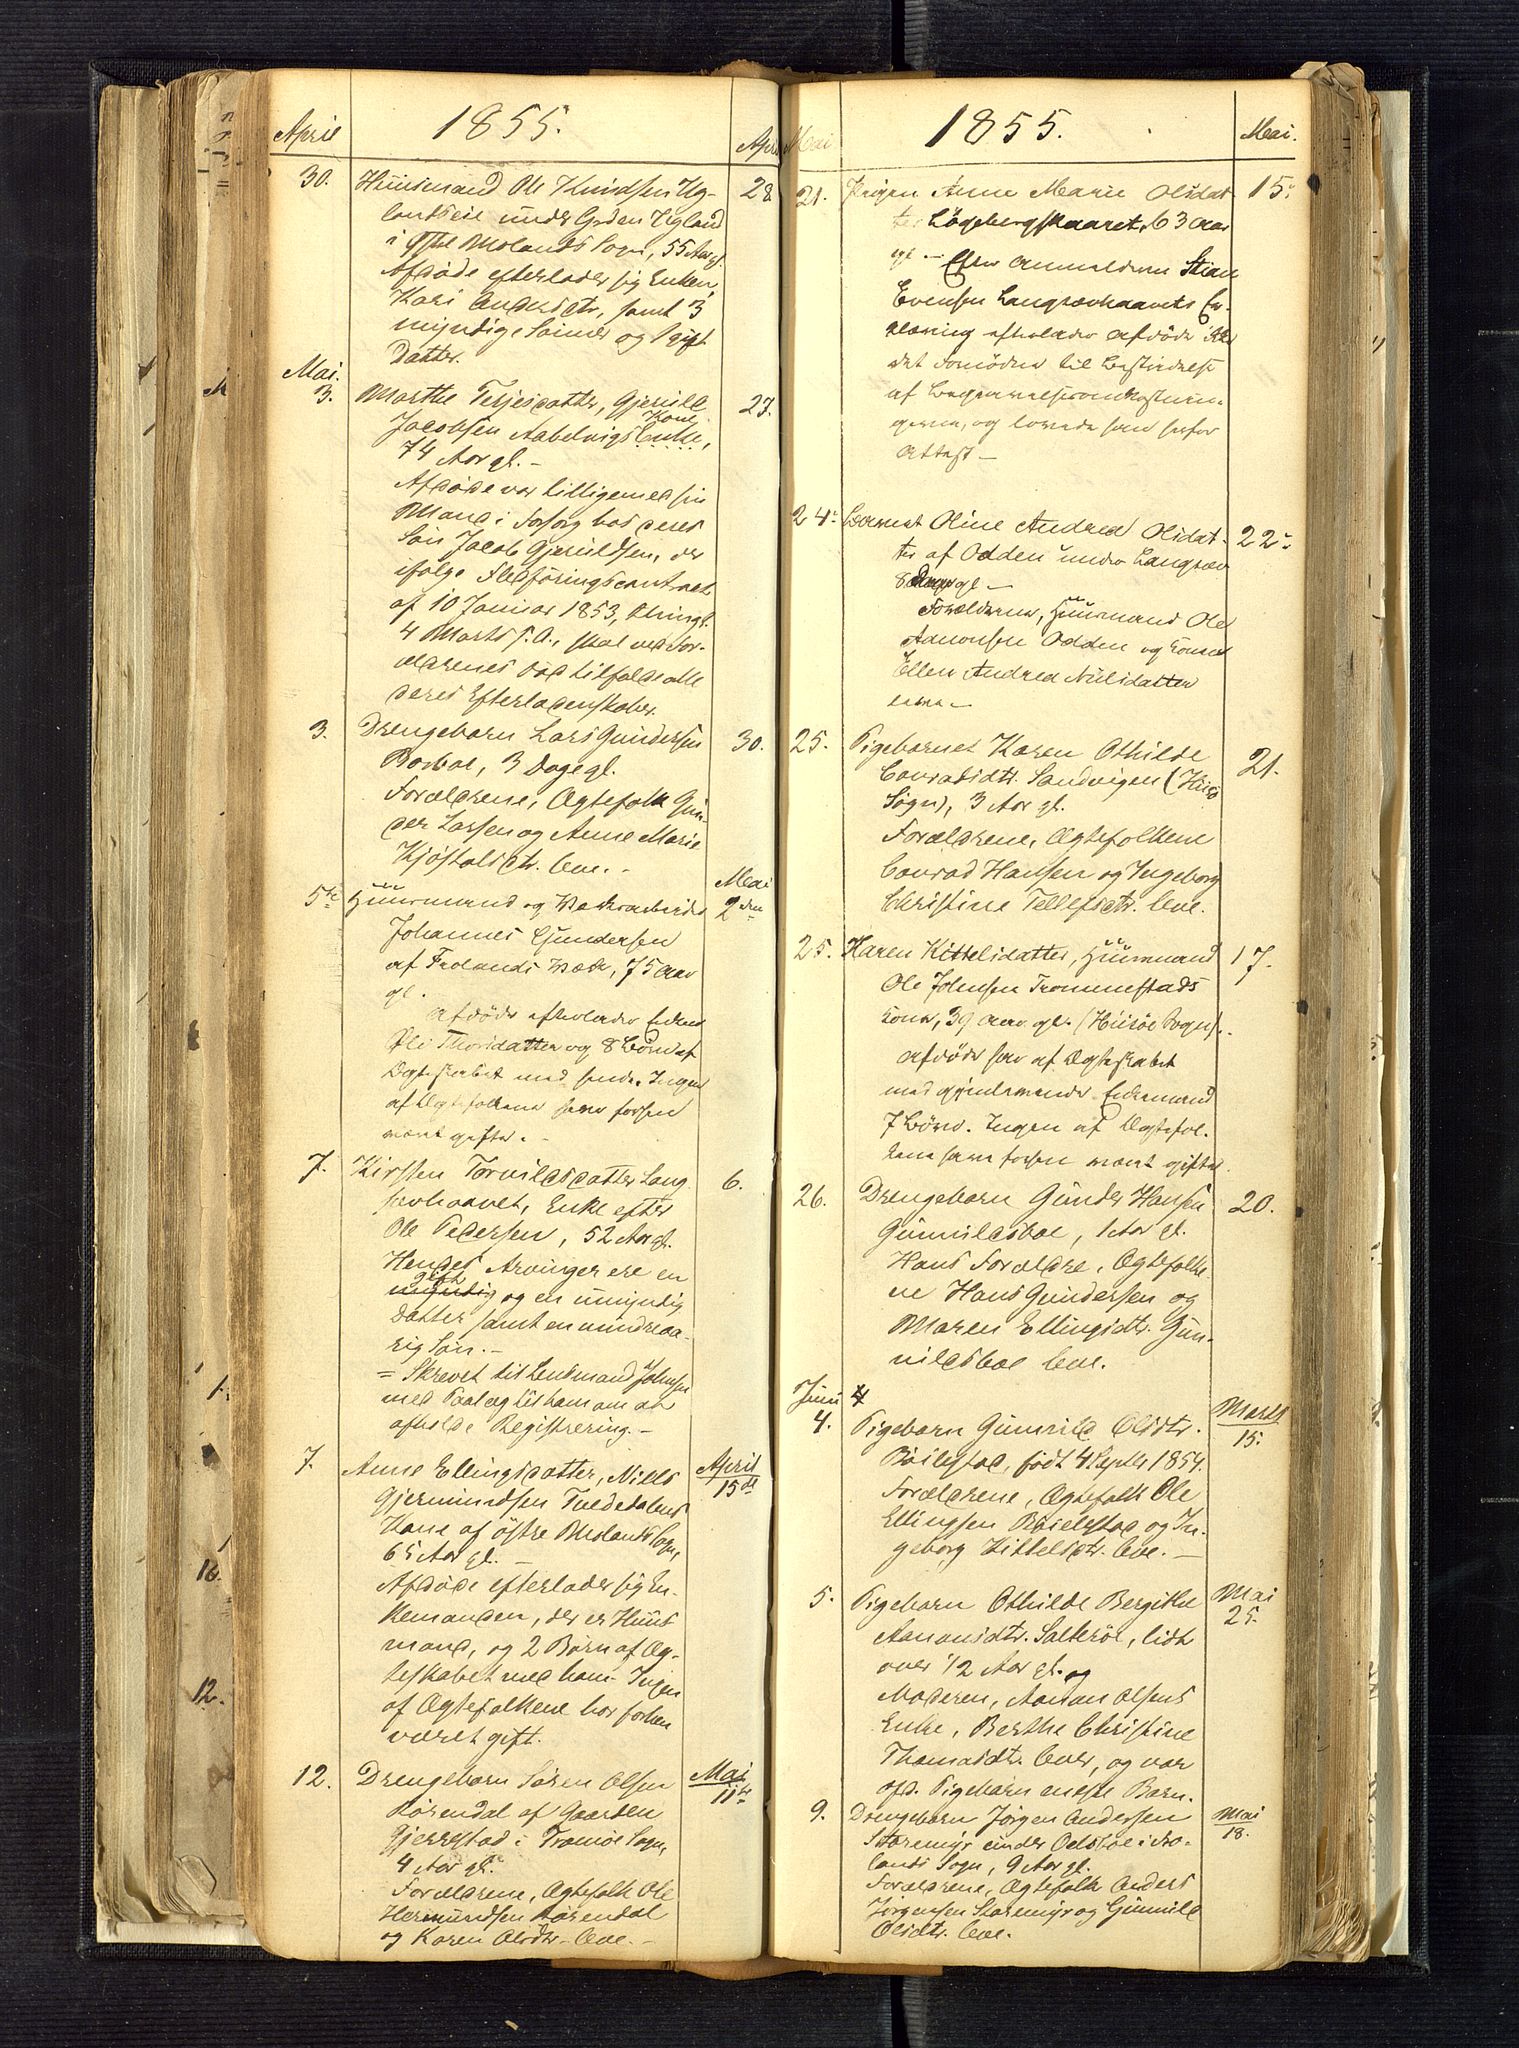 1855.
April
April
30. Huusmand Ole Knudsen Ug- 28
landseie under Gaden Ugland
i Østre Molands Sogn, 55 Aar gl.
Afdøde efterlader sig Enken,
Kari Andersdtr, samt 3
myndige Sønner og 1 gift
Datter.
Mai.
3. Marthe Terjesdatter, Gjeruld 27.
Jacobsen Aabelvigs Enke, Kone
74 Aar gl. -
Afdøde var tilligemed sin
Mand i Forsørg hos deres
Søn Jacob Gjeruldsen, der
ifølge Fledføringscontract
af 10 Januar 1853, thingl.
4 Marts s. A., skal ved For-
ældrenes Død tilfalde alle
deres Efterladenskaber.
3. Drengebarn Lars Gundersen 30.
Borboe, 3 Dage gl.
Forældrene, Ægtefolk Gun-
der Larsen og Anne Marie
Kjøstolsdtr. leve. -
Mai
5te Huusmand og Værksarbeider 2den
Johannes Gundersen
af Frolands Værk, 75 Aar
gl.
Afdøde efterlader Enken
Thorsdatter og 8 Børn af
Ægteskabet med hende. Ingen
af Ægtefolkene have forhen
været gifte. -
7. Kirsten Torvildsdatter Lang- 6.
sævhaavet, Enke efter
Ole Pedersen, 52 Aar gl.
Hendes Arvinger ere en
gift
myndig og en umyndig
Datter samt en mindreaa-
rig Søn. -
= Skrevet til Lensmand Johnsen
med Paalæg til ham om at
afholde Registrering. -
7. Anne Ellingsdatter, Niels April
Gjermundsen Tvededalens 15de
Kone af østre Molands Sogn,
65 Aar gl. -
Afdøde efterlader sig En-
kemanden, der er Huus-
mand, og 2 Børn af Æg-
teskabet med ham. Ingen
af Ægtefolkene har forhen
været gift.
12. Drengebarn Søren Olsen Mai
Rørendal af Gaarden 11te
Gjerrestad i Tromøe Sogn,
4 Aar gl.
Forældrene, Ægtefolk Ole
Hermundsen Rørendal
og Karen Olsdtr. leve. -
1855.
Mai
Mai.
21. Pigen Anne Marie Olsdat- 15.
ter Løgebergskaaret, 63 Aar
gl. - Efter Anmelderen Stian
Evensen Langsævhaavets Er-
klæring efterlader Afdøde ikke
det fornødne til Bestridelse
af Begravelsesomkostnin-
gerne, og lovede han herfor
Attest -
24. Barnet Oline Andrea Olsdat- 22.
ter af Odden under Langsæv
8 Dage gl -
Forældrene, Huusmand Ole
Aanonsen Odden og Konen
Ellen Andrea Nielsdatter
leve. -
25. Pigebarnet Karen Othilde 21.
Conradsdtr. Sandvigen (Hisø
Sogn), 3 Aar gl.
Forældrene, Ægtefolkene
Conrad Hansen og Ingeborg
Christine Tellefsdtr. leve.
25. Karen Kittelsdatter, Huusmand 17.
Ole Johnsen Trommestads
Kone, 39 Aar gl. (Hisøe Sogn).
Afdøde har af Ægteskabet
med gjenlevende Enkemand
7 Børn. Ingen af Ægtefol-
kene have forhen været gifte.
26. Drengebarn Gunder Hansen 20.
Gunnildsboe, 1 Aar gl.
Hans Forældre, Ægtefolke-
ne Hans Gundersen og
Maren Ellingsdtr. Gun-
nildsboe leve.
Juni
4. Pigebarn Gunnild Olsdtr. Marts
Bøilestad, født 4 Septbr 1854. 15.
Forældrene, Ægtefolk Ole
Ellingsen Bøilestad og In-
geborg Kittelsdtr. leve. -
5. Pigebarn Othilde Bergithe Mai
Aanonsdtr. Salterøe, lidt 25.
over 1/2 Aar gl. og
Moderen, Aanon Olsens
Enke, Berthe Christine
Thomasdtr. lever, og var
afd. Pigebarn eneste Barn.
9. Drengebarn Jørgen Andersen Mai
Storemyr under Osbøe i Fro- 18.
lands Sogn, 9 Aar gl.
Forældrene, Ægtefolk Anders
Jørgensen Storemyr og Gunnild
Olsdtr. leve.